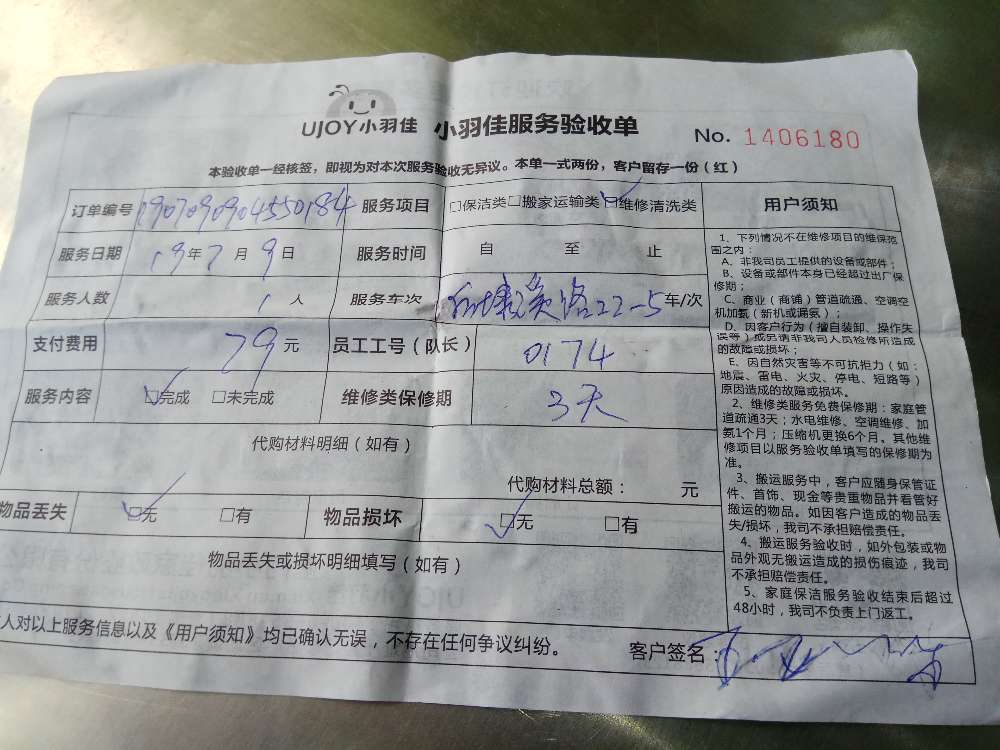 UJOY小羽佳 小羽佳服务验收单 No. 1406180
本验收单一经核签，即视为对本次服务验收无异议。本单一式两份，客户留存一份（红）
订单编号 1907090904550184 服务项目 □保洁类□搬家运输类□维修清洗类
服务日期 19年7月9日 服务时间 自 至 止
服务人数 1人 服务车次 路22-5车/次
支付费用 79元 员工工号（队长） 0174
服务内容 □完成 □未完成 维修类保修期 3天
代购材料明细（如有）
代购材料总额： 元
物品丢失 □无 □有 物品损坏 □无 □有
物品丢失或损坏明细填写（如有）
人对以上服务信息以及《用户须知》均已确认无误，不存在任何争议纠纷。
客户签名：
用户须知
1、下列情况不在维修项目的维保范
围之内：
A、非我司员工提供的设备或部件；
B、设备或部件本身已经超过出厂保
修期；
C、商业（商铺）管道疏通、空调空
机加氨（新机或漏氨）；
D、因客户行为（擅自装卸、操作失
误等）或另请非我司人员检修所造成
的故障或损坏；
E、因自然灾害等不可抗拒力（如：
地震、雷电、火灾、停电、短路等）
原因造成的故障或损坏。
2、维修类服务免费保修期：家庭管
道疏通3天；水电维修、空调维修、加
氨1个月；压缩机更换6个月。其他维
修项目以服务验收单填写的保修期为
准。
3、搬运服务中，客户应随身保管证
件、首饰、现金等贵重物品并看管好
搬运的物品。如因客户造成的物品丢
失/损坏，我司不承担赔偿责任。
4、搬运服务验收时，如外包装或物
品外观无搬运造成的损伤痕迹，我司
不承担赔偿责任。
5、家庭保洁服务验收结束后超过
48小时，我司不负责上门返工。